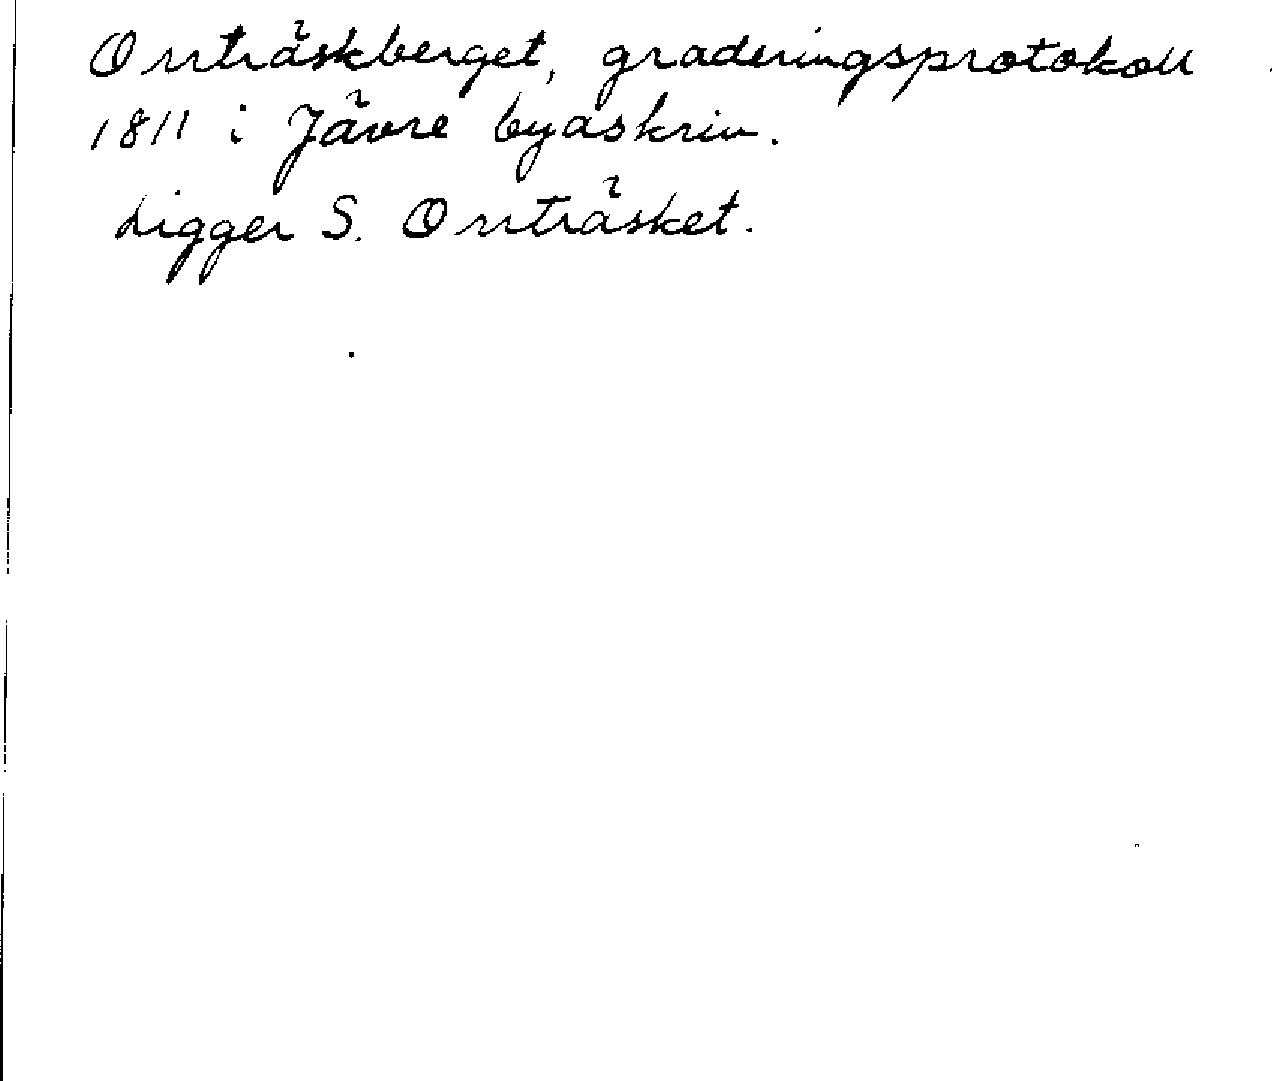 Orrträskberget, graderingsprotokoll
1811 i Jävre byaskrin.
Ligger S. Orrträsket.